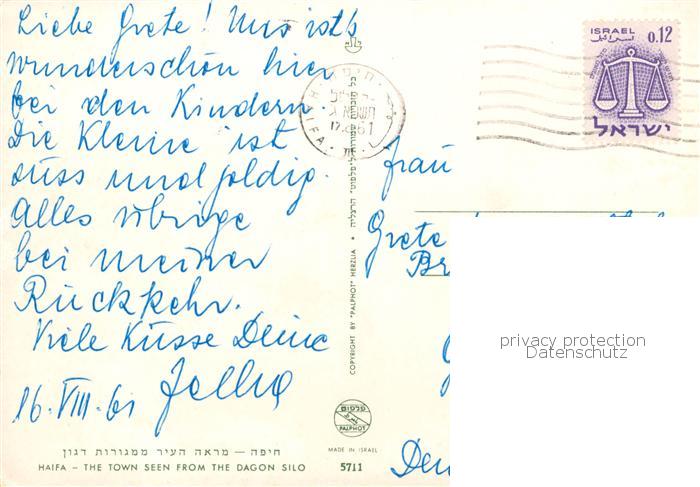 Liebe Grete! Uns ist's
wunderschön hier
bei den Kindern.
Die Kleine ist
süss und goldig.
Alles übrige
bei meiner
Rückkehr.
Viele Küsse Deine
16. VIII. 61
חיפה — מראה העיר ממגורות דגון
HAIFA – THE TOWN SEEN FROM THE DAGON SILO
COPYRIGHT BY "PALPHOT" HERZLIA • כל הזכויות שמורות ל"פלפוט" הרצליה
פלפוט
PALPHOT
MADE IN ISRAEL
5711
חיפה
HAIFA
ISRAEL
0.12
اسرائيل
ישראל
Frau
Grete
privacy protection
Datenschutz